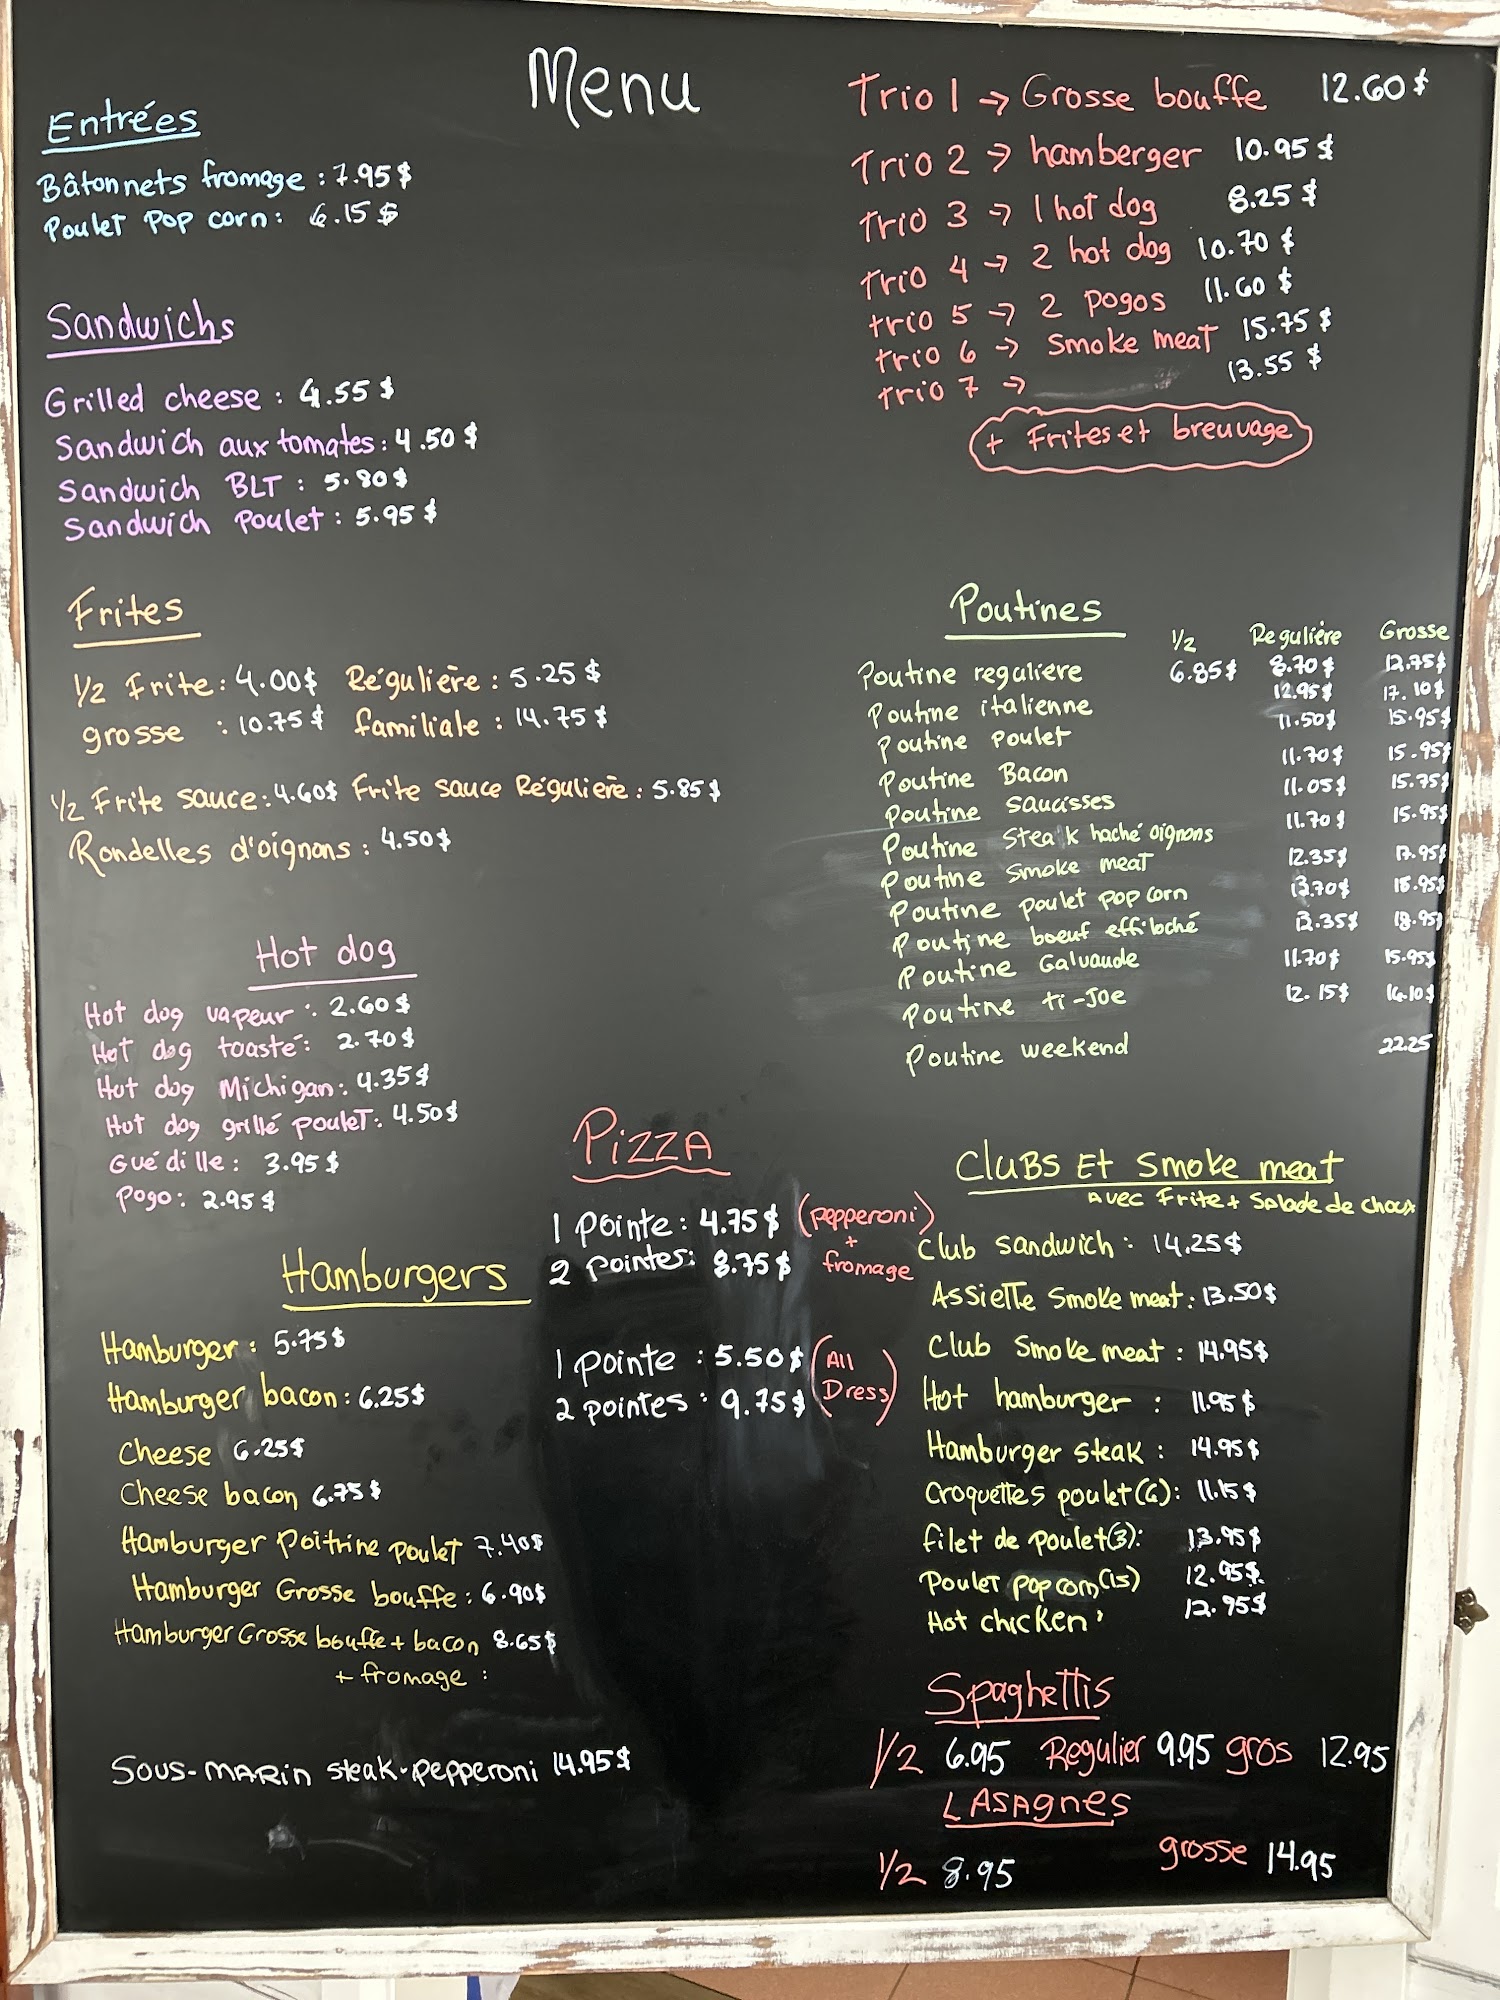 Menu
Entrées
Bâtonnets fromage : 7.95 $
Poulet Pop corn : 6.15 $
Sandwichs
Grilled cheese : 4.55 $
Sandwich aux tomates : 4.50 $
Sandwich BLT : 5.80 $
Sandwich Poulet : 5.95 $
Frites
1/2 Frite : 4.00 $ Régulière : 5.25 $
grosse : 10.75 $ familiale : 14.75 $
1/2 Frite sauce : 4.60 $ Frite sauce Régulière : 5.85 $
Rondelles d'oignons : 4.50 $
Hot dog
Hot dog vapeur : 2.60 $
Hot dog toasté : 2.70 $
Hot dog Michigan : 4.35 $
Hot dog grillé poulet : 4.50 $
Guédille : 3.95 $
Pogo : 2.95 $
Hamburgers
Hamburger : 5.75 $
Hamburger bacon : 6.25 $
Cheese 6.25 $
Cheese bacon 6.75 $
Hamburger Poitrine poulet 7.40 $
Hamburger Grosse bouffe : 6.90 $
Hamburger Grosse bouffe + bacon 8.65 $
+ fromage :
Sous-marin steak-pepperoni 14.95 $
Pizza
1 pointe : 4.75 $ (pepperoni)
2 pointes : 8.75 $ + fromage
1 pointe : 5.50 $ (All
2 pointes : 9.75 $ Dress)
Trio 1 → Grosse bouffe 12.60 $
Trio 2 → hamberger 10.95 $
Trio 3 → 1 hot dog 8.25 $
Trio 4 → 2 hot dog 10.70 $
trio 5 → 2 pogos 11.60 $
trio 6 → smoke meat 15.75 $
trio 7 → 13.55 $
+ Frites et breuvage
Poutines
1/2 Régulière Grosse
Poutine reguliere 6.85 $ 8.70 $ 12.75 $
Poutine italienne 12.95 $ 17.10 $
Poutine Poulet 11.50 $ 15.95 $
Poutine Bacon 11.70 $ 15.95 $
Poutine saucisses 11.05 $ 15.75 $
Poutine steak haché oignons 11.70 $ 15.95 $
Poutine smoke meat 12.35 $
Poutine poulet pop corn
Poutine boeuf effiloché 18.95 $
Poutine Galvaude 11.70 $ 15.95 $
Poutine ti-Joe 12.15 $ 16.10 $
Poutine weekend 22.25
Clubs et Smoke meat
Avec Frite + Salade de choux
Club sandwich : 14.25 $
Assiette Smoke meat : 13.50 $
Club Smoke meat : 14.95 $
Hot hamburger : 11.95 $
Hamburger steak : 14.95 $
Croquettes poulet (6) : 11.15 $
filet de poulet (3) : 13.95 $
Poulet pop corn (15) 12.95 $
Hot chicken 12.95 $
Spaghettis
1/2 6.95 Regulier 9.95 gros 12.95
Lasagnes
1/2 8.95 grosse 14.95